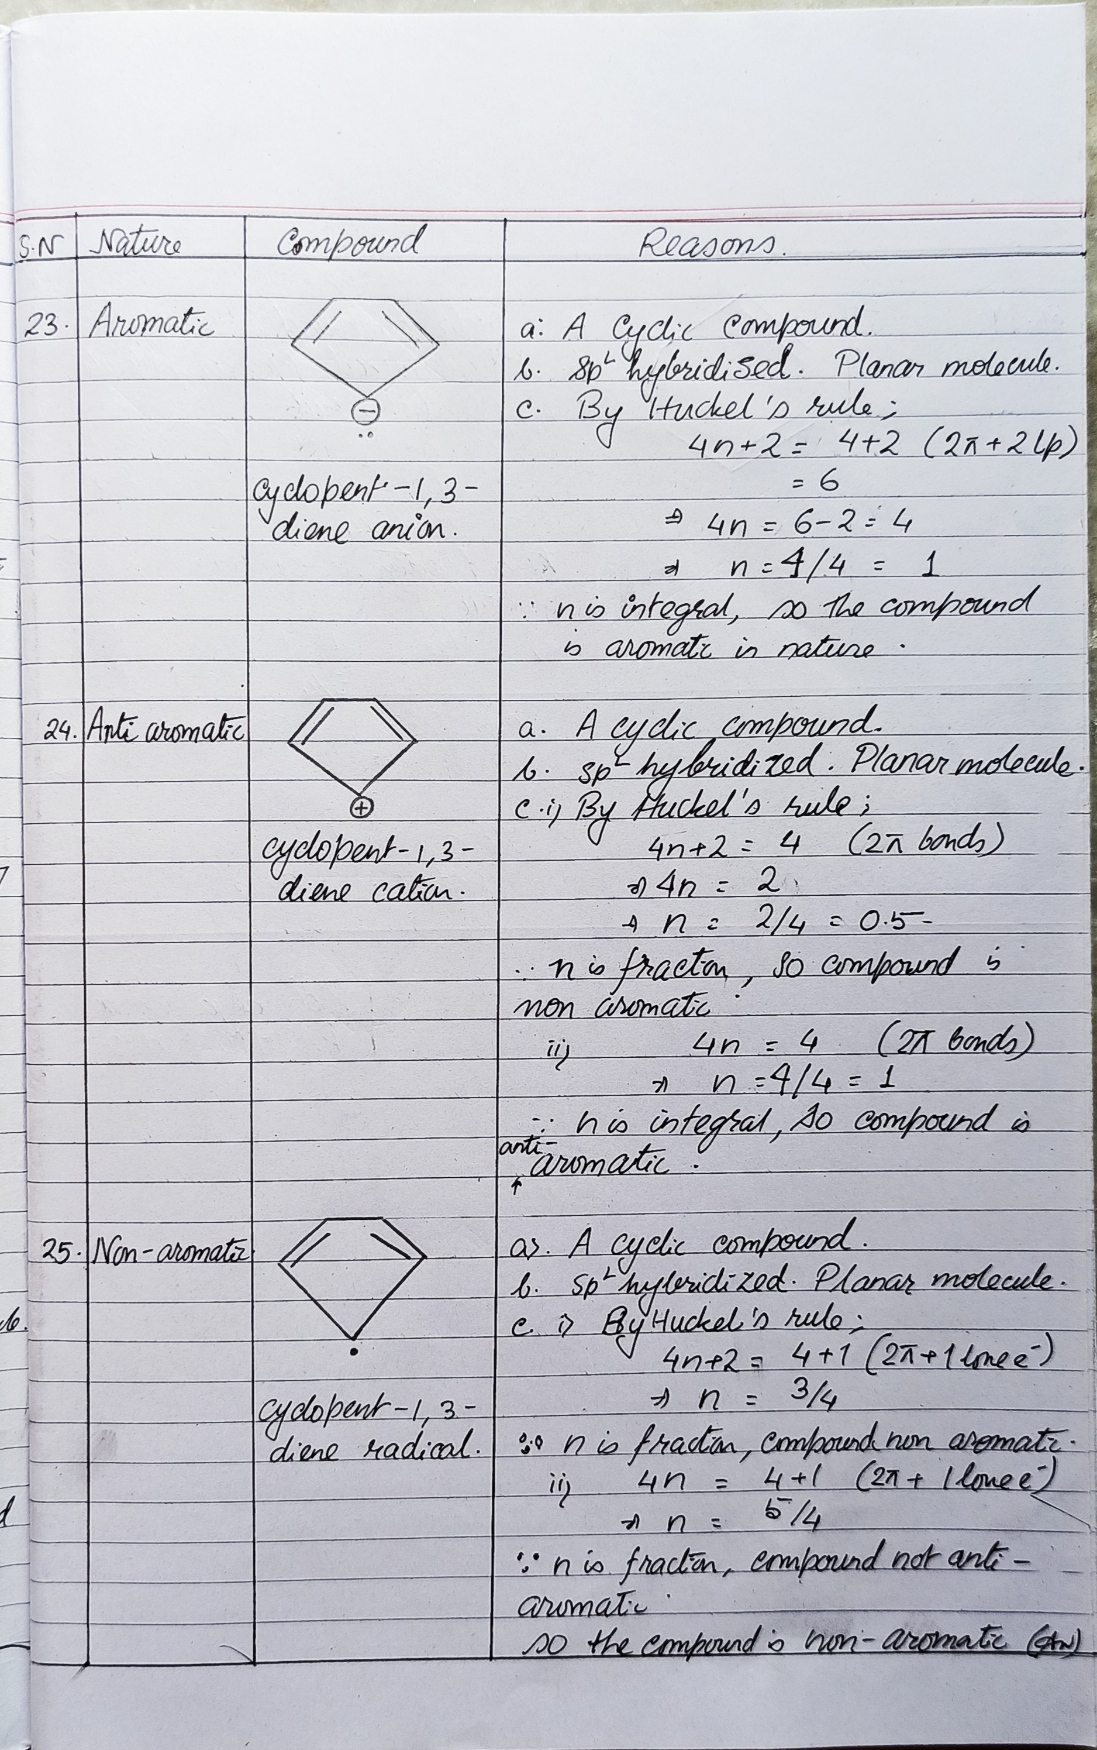 S.N Nature Compound Reasons.
23. Aromatic
a: A Cyclic compound.
b. sp² hybridised. Planar molecule.
c. By Huckel's rule;
4n+2 = 4+2 (2π+2lp)
= 6
⇒ 4n = 6-2 = 4
⇒ n = 4/4 = 1
∵ n is integral, so the compound
is aromatic in nature.
⊖
..
cyclopent-1,3-
diene anion.
24. Anti aromatic
a. A cyclic compound.
b. sp² hybridized. Planar molecule.
c.i) By Huckel's rule;
4n+2 = 4 (2π bonds)
⇒ 4n = 2
⇒ n = 2/4 = 0.5
∵ n is fraction, so compound is
non aromatic.
ii) 4n = 4 (2π bonds)
⇒ n = 4/4 = 1
∵ n is integral, so compound is
anti-
aromatic.
⊕
cyclopent-1,3-
diene cation.
25. Non-aromatic
a). A cyclic compound.
b. sp² hybridized. Planar molecule.
c. i) By Huckel's rule;
4n+2 = 4+1 (2π+1 lone e⁻)
⇒ n = 3/4
∵ n is fraction, compound non aromatic.
ii) 4n = 4+1 (2π + 1 lone e⁻)
⇒ n = 5/4
∵ n is fraction, compound not anti-
aromatic.
so the compound is non-aromatic (Ans)
cyclopent-1,3-
diene radical.